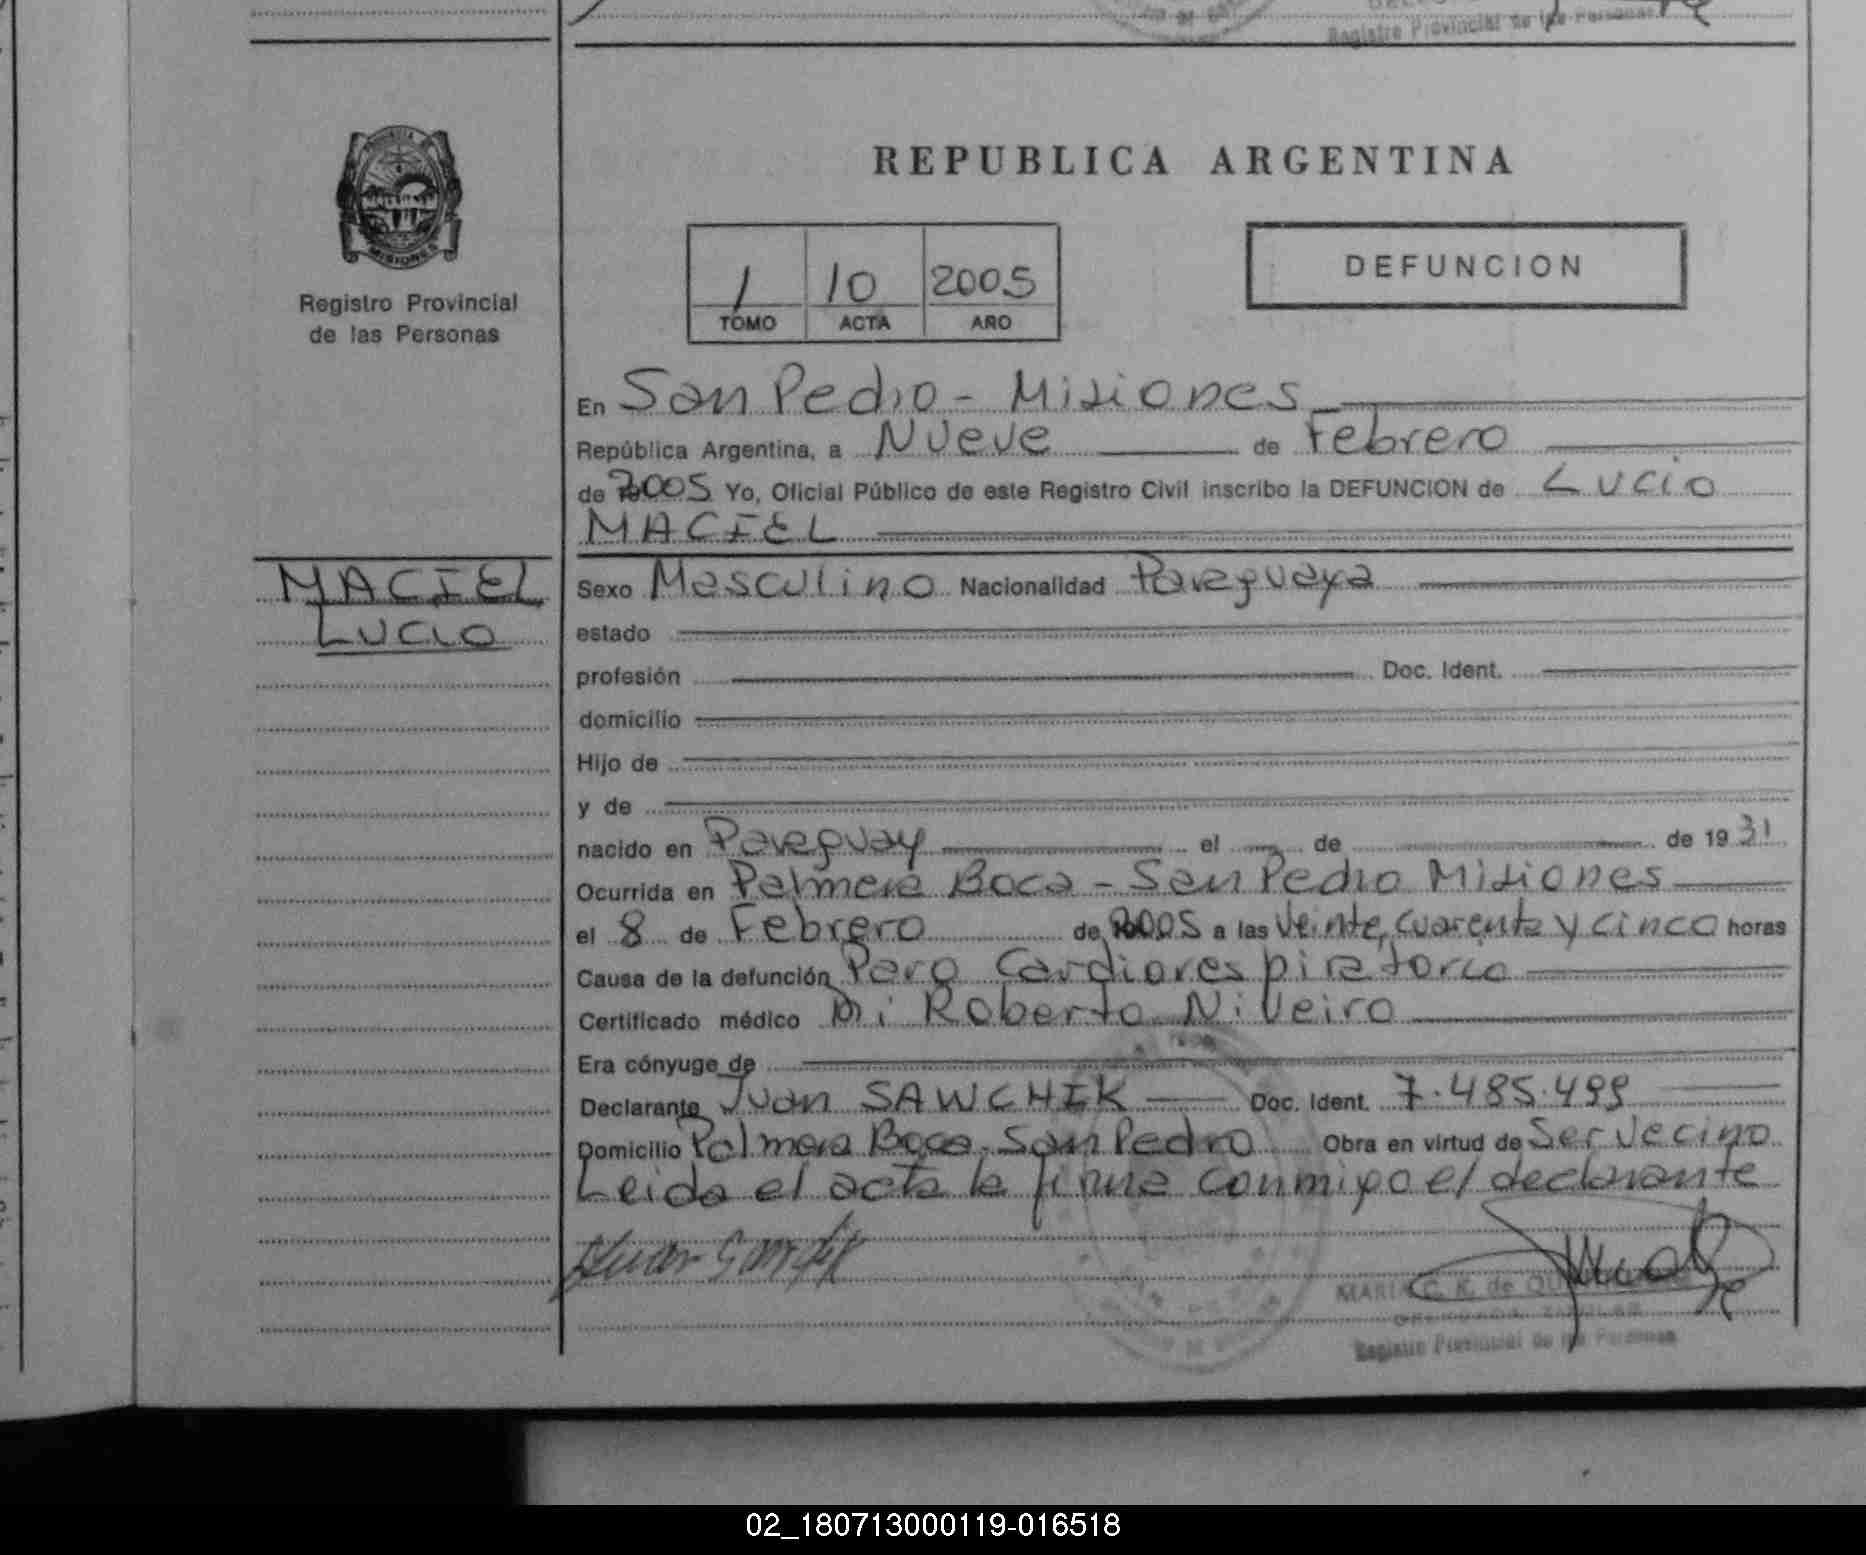 Registro Provincial de las Personas
REPUBLICA ARGENTINA
MISIONES
Registro Provincial
de las Personas
1 10 2005
TOMO ACTA AÑO
DEFUNCION
En San Pedro - Misiones
República Argentina, a Nueve de Febrero
de 2005 Yo, Oficial Público de este Registro Civil inscribo la DEFUNCION de Lucio
MACIEL
MACIEL
LUCIO
Sexo Masculino Nacionalidad Paraguaya
estado
profesión Doc. Ident.
domicilio
Hijo de
y de
nacido en Paraguay el de de 1931
Ocurrida en Palmera Boca - San Pedro Misiones
el 8 de Febrero de 2005 a las Veinte, cuarenta y cinco horas
Causa de la defunción Paro Cardiorespiratorio
Certificado médico Dr: Roberto Niveiro
Era cónyuge de
Declarante Juan SAWCHIK Doc. Ident. 7.485.499
Domicilio Palmera Boca. San Pedro Obra en virtud de Ser Vecino
Leida el acta la firma conmigo el declarante
MARIA C. K. de
Registro Provincial de las Personas
02_180713000119-016518